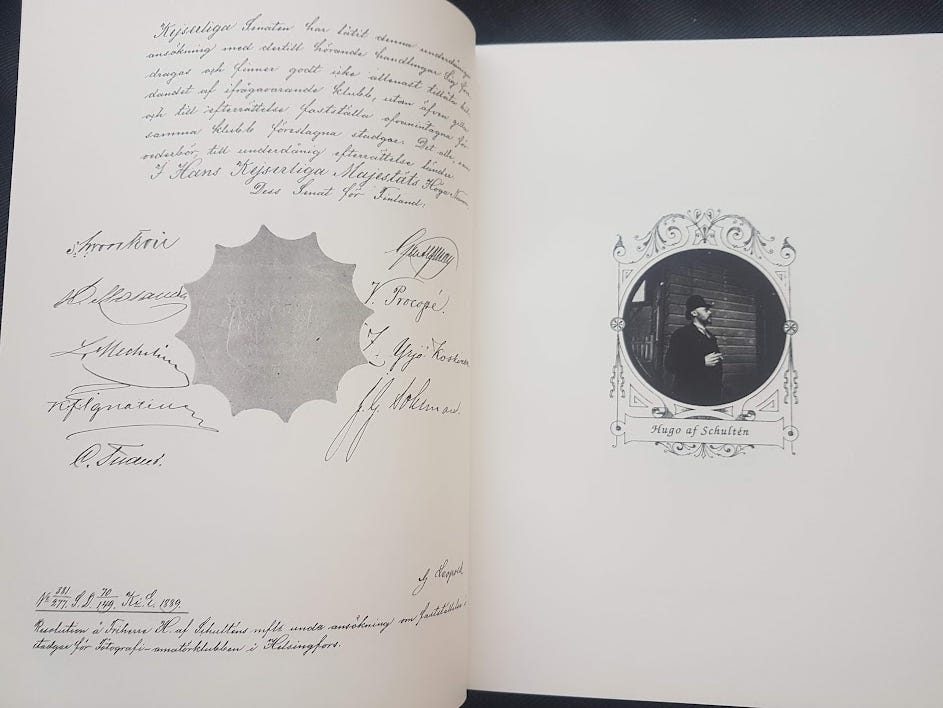 Kejserliga Senaten har låtit denna underdåniga
ansökning med dertill hörande handlingar sig före-
dragas och finner godt icke allenast tillåta bil-
dandet af ifrågavarande klubb, utan äfven gilla
och till efterrättelse fastställa ofvanintagna för
samma klubb föreslagna stadgar. Det alle, som
vederbör, till underdånig efterrättelse länder.
I Hans Kejserliga Majestäts Höga Namn,
Dess Senat för Finland:
V. Procopé.
L. Mechelin
Z. Yrjö-Koskinen
K. F. Ignatius
J. G. Sohlman.
Leopold
No 381/277. S. D. 70/149. K. E. 1889.
Resolution å Friherre H. af Schulténs mfls unda ansökning om fastställelse å
stadgar för Fotografi-amatörklubben i Helsingfors.
Hugo af Schultén